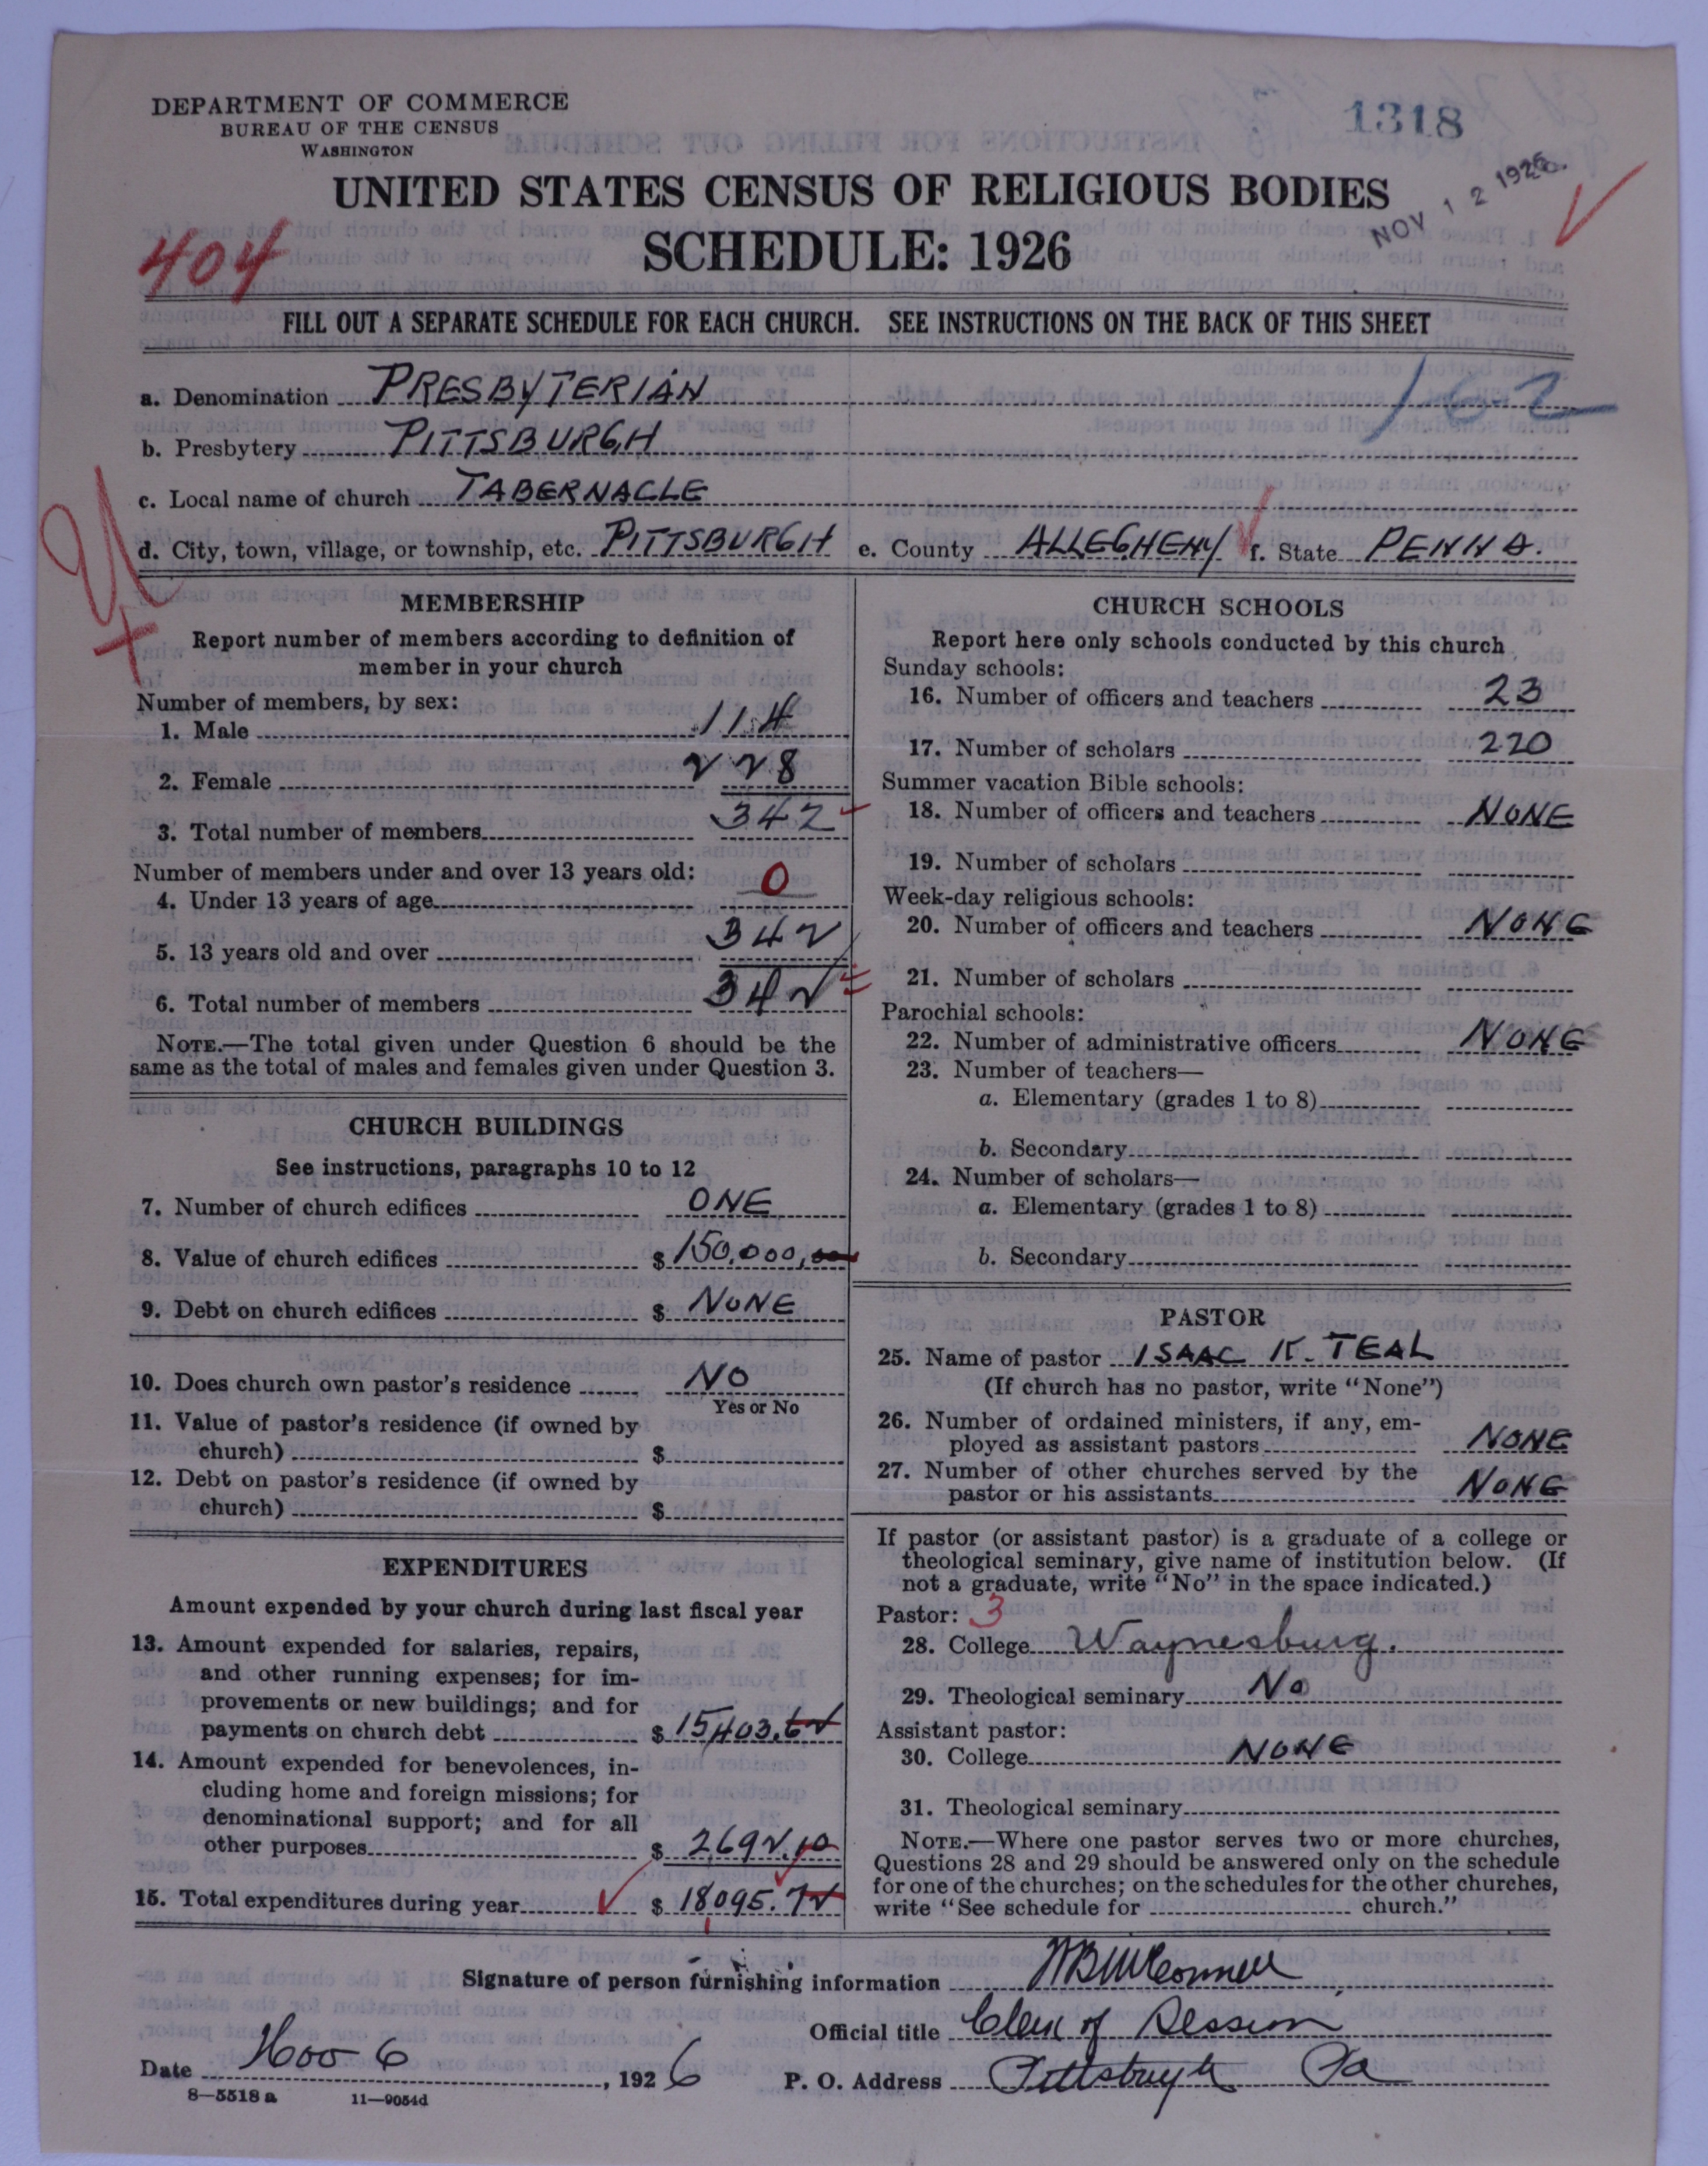 DEPARTMENT OF COMMERCE
BUREAU OF THE CENSUS
WASHINGTON
1318
NOV 12 1926
UNITED STATES CENSUS OF RELIGIOUS BODIES
SCHEDULE: 1926
404
FILL OUT A SEPARATE SCHEDULE FOR EACH CHURCH. SEE INSTRUCTIONS ON THE BACK OF THIS SHEET
162
a. Denomination PRESBYTERIAN
b. Presbytery PITTSBURGH
c. Local name of church TABERNACLE
d. City, town, village, or township, etc. PITTSBURGH e. County ALLEGHENY f. State PENNA.
MEMBERSHIP
Report number of members according to definition of
member in your church
Number of members, by sex:
1. Male 114
2. Female 228
3. Total number of members 342
Number of members under and over 13 years old:
4. Under 13 years of age 0
5. 13 years old and over 342
6. Total number of members 342
NOTE.—The total given under Question 6 should be the
same as the total of males and females given under Question 3.
CHURCH BUILDINGS
See instructions, paragraphs 10 to 12
7. Number of church edifices ONE
8. Value of church edifices $ 150,000,00
9. Debt on church edifices $ NONE
10. Does church own pastor's residence NO
Yes or No
11. Value of pastor's residence (if owned by
church) $
12. Debt on pastor's residence (if owned by
church) $
EXPENDITURES
Amount expended by your church during last fiscal year
13. Amount expended for salaries, repairs,
and other running expenses; for im-
provements or new buildings; and for
payments on church debt $ 15403.62
14. Amount expended for benevolences, in-
cluding home and foreign missions; for
denominational support; and for all
other purposes $ 2692.10
15. Total expenditures during year $ 18095.72
CHURCH SCHOOLS
Report here only schools conducted by this church
Sunday schools:
16. Number of officers and teachers 23
17. Number of scholars 220
Summer vacation Bible schools:
18. Number of officers and teachers NONE
19. Number of scholars
Week-day religious schools:
20. Number of officers and teachers NONE
21. Number of scholars
Parochial schools:
22. Number of administrative officers NONE
23. Number of teachers—
a. Elementary (grades 1 to 8)
b. Secondary
24. Number of scholars—
a. Elementary (grades 1 to 8)
b. Secondary
PASTOR
25. Name of pastor ISAAC K. TEAL
(If church has no pastor, write "None")
26. Number of ordained ministers, if any, em-
ployed as assistant pastors NONE
27. Number of other churches served by the
pastor or his assistants NONE
If pastor (or assistant pastor) is a graduate of a college or
theological seminary, give name of institution below. (If
not a graduate, write "No" in the space indicated.)
Pastor: 3
28. College Waynesburg.
29. Theological seminary No
Assistant pastor:
30. College NONE
31. Theological seminary
NOTE.—Where one pastor serves two or more churches,
Questions 28 and 29 should be answered only on the schedule
for one of the churches; on the schedules for the other churches,
write "See schedule for church."
Signature of person furnishing information WB McConnell
Official title Clerk of Session
Date Nov 6, 1926 P. O. Address Pittsburgh Pa
8—5518 a 11—9054d